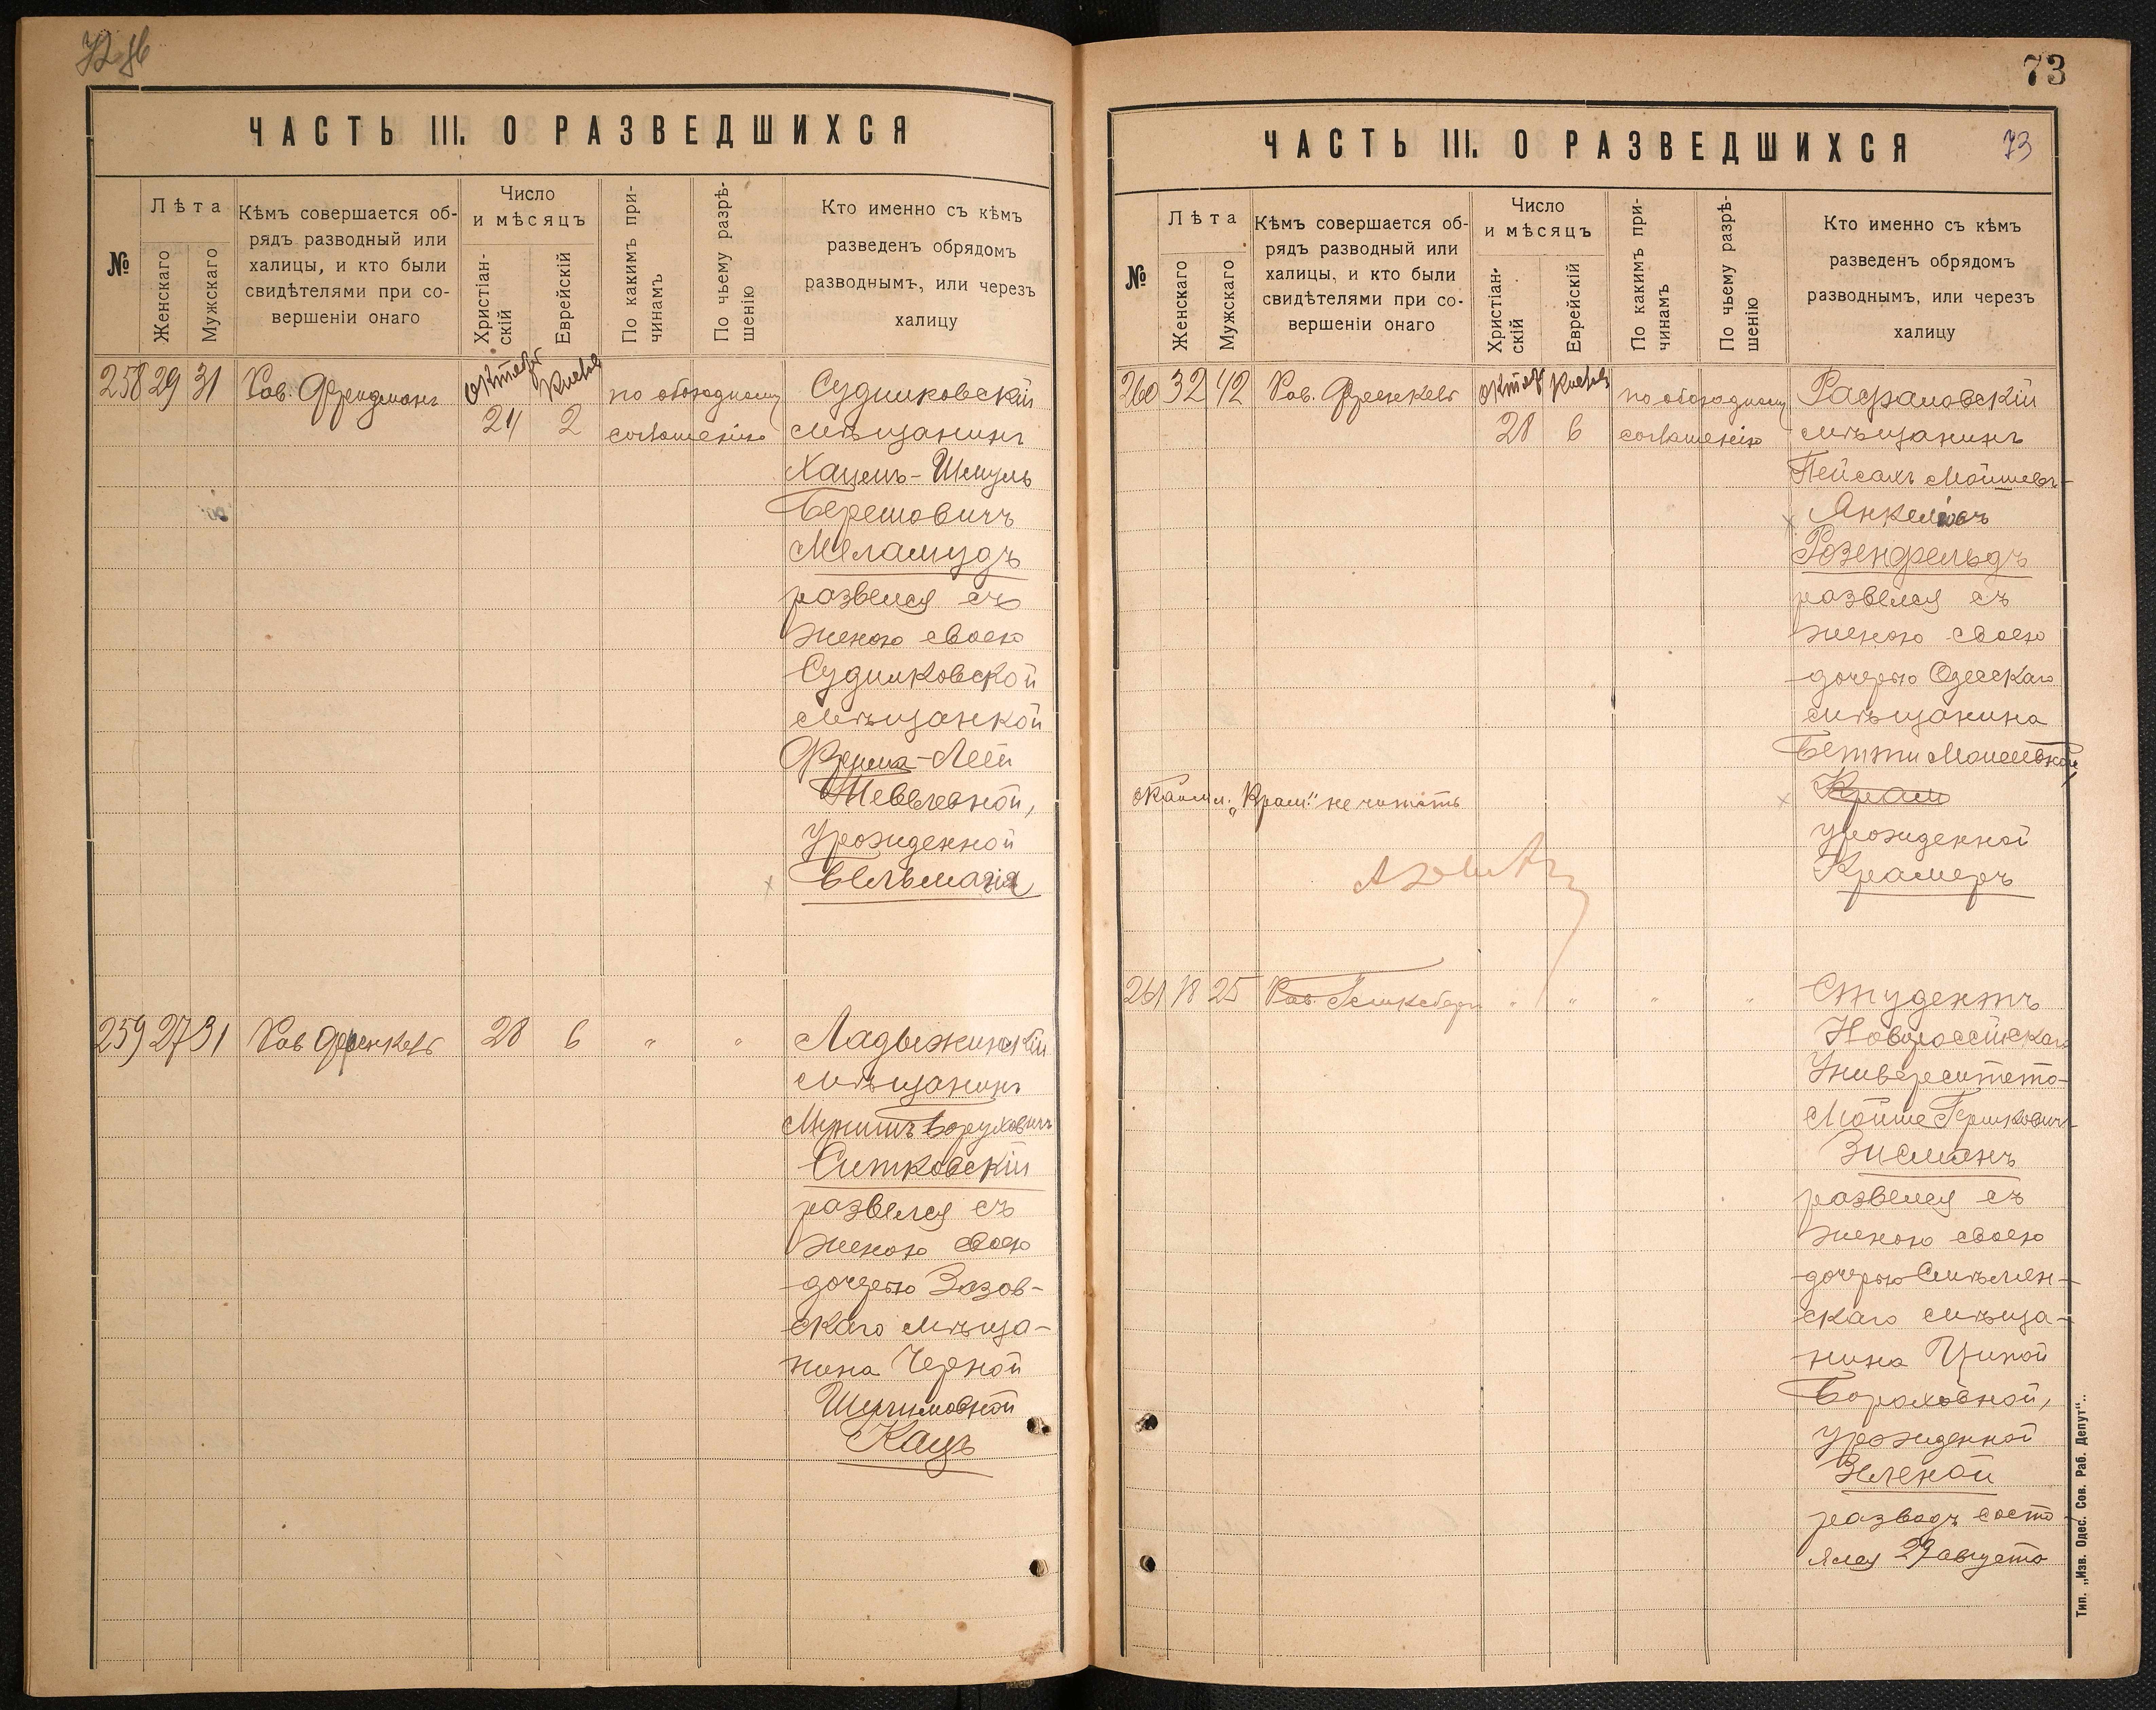 73
ЧАСТЬ III. О РАЗВЕДШИХСЯ
№
Лѣта
Женскаго
Мужскаго
Кѣмъ совершается об-
рядъ разводный или
халицы, и кто были
свидѣтелями при со-
вершеніи онаго
Число
и мѣсяцъ
Христіан-
скій
Еврейскій
По какимъ при-
чинамъ
По чьему разрѣ-
шенію
Кто именно съ кѣмъ
разведенъ обрядомъ
разводнымъ, или черезъ
халицу
258 29 31 Рав. Фридманъ
24 2
по обоюдному
соглашенію
Судилковскій
мѣщанинъ
Хацель-Шмуль
Берковичъ
Меламудъ
развелся съ
женою своею
Судилковской
мѣщанкой
Лей
урожденной
259 27 31 Рав Френкель 28 6 " "
Ладыжинскій
мѣщанинъ
Боруховичъ
Ситковскій
развелся съ
женою своею
дочерью Зазов-
скаго мѣща-
нина Черной
Кацъ
ЧАСТЬ III. О РАЗВЕДШИХСЯ 73
№
Лѣта
Женскаго
Мужскаго
Кѣмъ совершается об-
рядъ разводный или
халицы, и кто были
свидѣтелями при со-
вершеніи онаго
Число
и мѣсяцъ
Христіан-
скій
Еврейскій
По какимъ при-
чинамъ
По чьему разрѣ-
шенію
Кто именно съ кѣмъ
разведенъ обрядомъ
разводнымъ, или черезъ
халицу
260 32 42 Рав. Френкель
28 6
по обоюдному
соглашенію
Рафаловскій
мѣщанинъ
Пейсахъ Мойшевъ-
Розенфельдъ
развелся съ
женою своею
дочерью Одесскаго
мѣщанина
Бетти Моисеевной
Крам
"Крам." не читать
урожденной
Крамеръ
261 18 25 Рав. " " " "
Студентъ
Новороссійскаго
Университета
Мойше Гершковичъ
Зисманъ
развелся съ
женою своею
дочерью Смѣлян-
скаго мѣща-
нина Ципой
Бороховной,
урожденной
Зеленой
разводъ состо
ялся 29 августа
Тип. „Изв. Одес. Сов. Раб. Депут“.